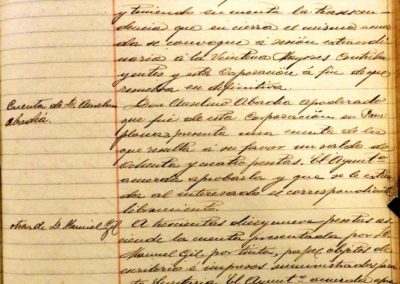 y teniendo en cuenta la trascen
dencia que en cierra el mismo acuer
da se convoque á sesión extraordi
naria á la Veintena Mayores Contribu
yentes y esta Corporación á fin de que
resuelva en definitiva.
Cuenta de D. Anselmo
Abadía.
Don Anselmo Abadía Apoderado
que fué de esta Corporación en Pam
plona, presenta una cuenta de la
que resulta á su favor un saldo de
ochenta y cuatro pesetas. El Ayuntº
acuerda aprobarla y que se le extien
da al interesado el correspondiente
libramiento.
otra de D. Manuel Gil
A doscientas diez y nueve pesetas as
ciende la cuenta presentada por D.
Manuel Gil por tinta, papel, objetos de
escritorio é impresos suministrados para
Secretaría. El Ayuntº acuerda apro